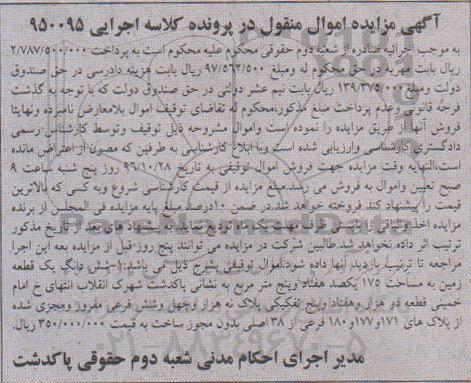 آگهی مزایده اموال منقول در پرونده کلاسه اجرایی ۹۵۰۰۹۵
به موجب اجرائیه صادره از شعبه دوم حقوقی محکوم علیه محکوم است به پرداخت ۲/۷۸۷/۵۰۰/۰۰۰
ریال بابت مهریه در حق محکوم له ومبلغ ۹۷/۵۶۲/۵۰۰ ریال بابت هزینه دادرسی در حق صندوق
دولت ومبلغ ۱۳۹/۳۷۵/۰۰۰ ریال بابت نیم عشر دولتی در حق صندوق دولت که با توجه به گذشت
فرجه قانونی وعدم پرداخت مبلغ مذکور،محکوم له تقاضای توقیف اموال بلامعارض نامبرده ونهایتا
فروش آنها از طریق مزایده را نموده است واموال مشروحه ذیل توقیف وتوسط کارشناس رسمی
دادگستری کارشناسی وارزیابی شده است وبا ابلاغ کارشناسی به طرفین که مصون از اعتراض مانده
است،النهایه وقت مزایده جهت فروش اموال توقیفی به تاریخ ۹۶/۱۰/۲۸ روز پنج شنبه ساعت ۹
صبح تعیین واموال به فروش می رسد.مبلغ مزایده از قیمت کارشناسی شروع وبه کسی که بالاترین
قیمت را پیشنهاد کند فروخته خواهد شد.در ضمن ۱۰درصد مبلغ پایه مزایده فی المجلس از برنده
مزایده اخذ ومابقی را بایستی ظرف مهلت یک ماه تودیع نماید.به پیشنهاد های بعد از تاریخ مذکور
ترتیب اثر داده نخواهد شد.طالبین شرکت در مزایده می توانند پنج روز قبل از مزایده بعه این اجرا
مراجعه تا ترتیب بازدید آنها داده شود.اموال توقیفی بشرح ذیل می باشد:۱-شش دانگ یک قطعه
زمین به مساحت ۱۷۵ یکصد هفتاد وپنج متر مربع به نشانی پاکدشت شهرک انقلاب انتهای خ امام
خمینی قطعه دو هزار وهفتاد وپنج تفکیکی پلاک نه هزار وچهل وشش فرعی مفروز ومجزی شده
از پلاک های ۱۷۱و۱۷۷و۱۸۰ فرعی از ۳۸اصلی بدون مجوز ساخت به قیمت ۳۵۰/۰۰۰/۰۰۰ ریال.
مدیر اجرای احکام مدنی شعبه دوم حقوقی پاکدشت
ParsNamadData
۰۲۱-۸۸۳۴۹۶۷۰-۵